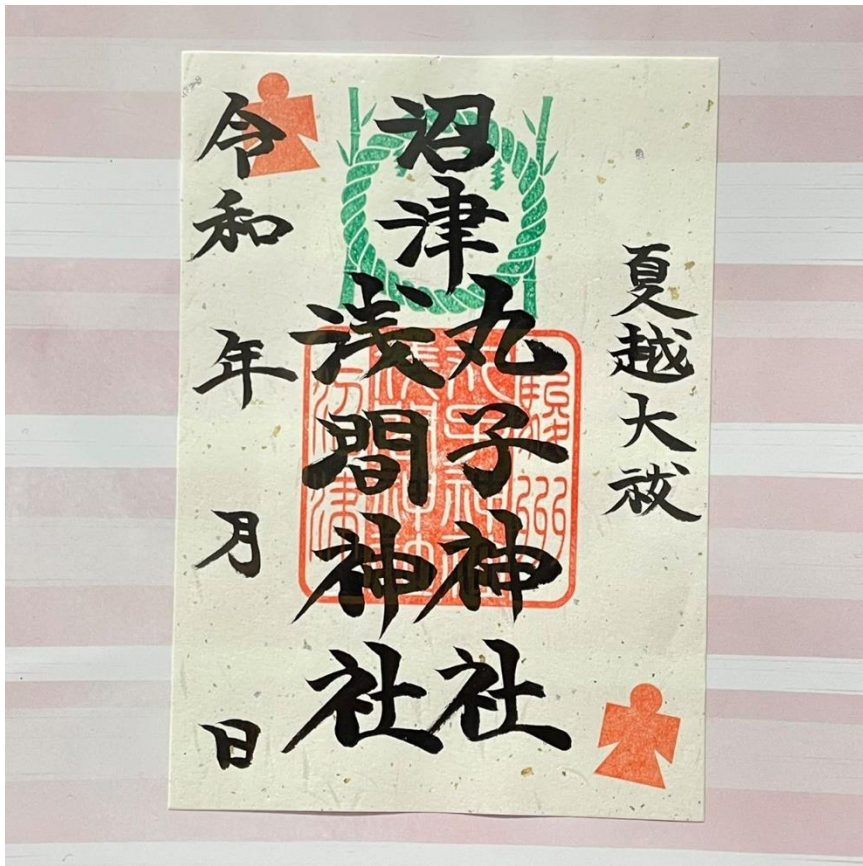 夏越大祓
沼津
丸子神社
浅間神社
令和 年 月 日